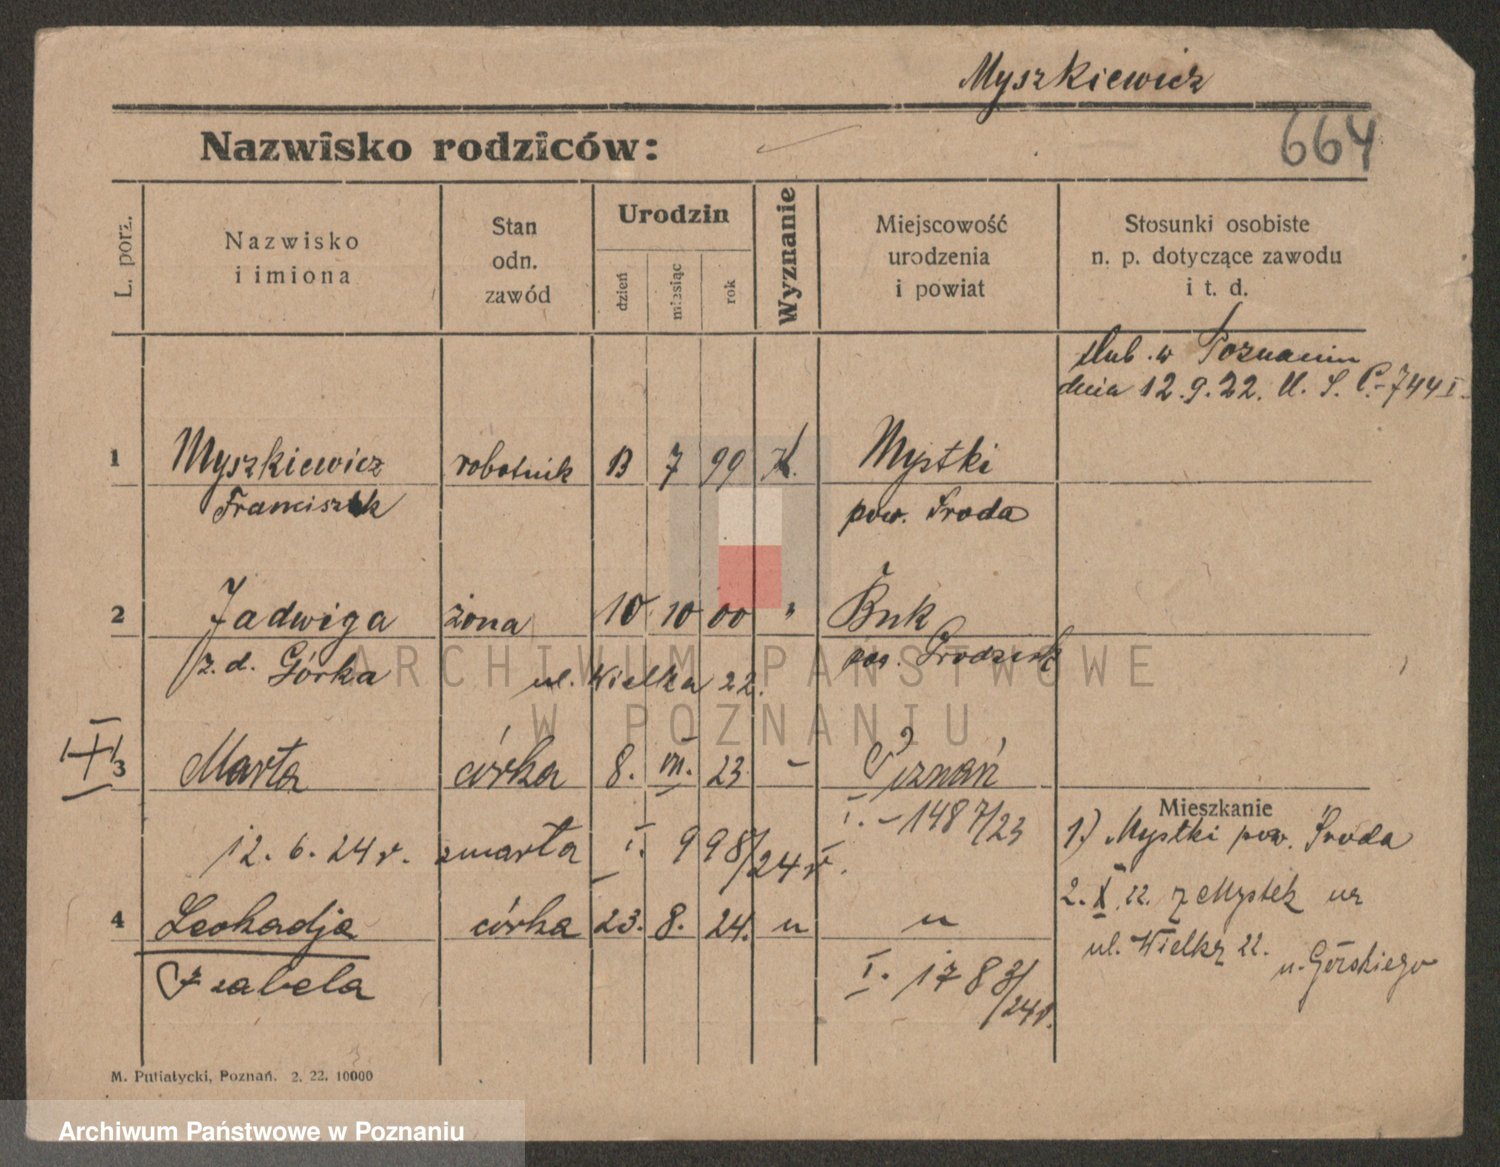 Myszkiewicz
664
Nazwisko rodziców:
L. porz.
Nazwisko
i imiona
Stan
odn.
zawód
Urodzin
dzień
miesiąc
rok
Wyznanie
Miejscowość
urodzenia
i powiat
Stosunki osobiste
n. p. dotyczące zawodu
i t. d.
ślub. w Poznaniu
dnia 12.9.22. U. S. C.-744 I.
1 Myszkiewicz robotnik 13 7 99 K. Mystki
Franciszek pow. Środa
2 Jadwiga żona 10 10 00 " Buk
z. d. Górka ul. Wielka 22. pow. Grodzisk
3 Marta córka 8. VII. 23 - Poznań
I. - 1487/23
12. 6. 24 r. zmarta I. 998/24 r.
4 Leokadja córka 23. 8. 24. u u
Izabela I. 1783/24 r.
Mieszkanie
1.) Mystki pow. Środa
2. X. 22. z Mystek na
ul. Wielką 22.
u. Górskiego
M. Putiatycki, Poznań. 2. 22. 10000
ARCHIWUM PAŃSTWOWE
W POZNANIU
Archiwum Państwowe w Poznaniu